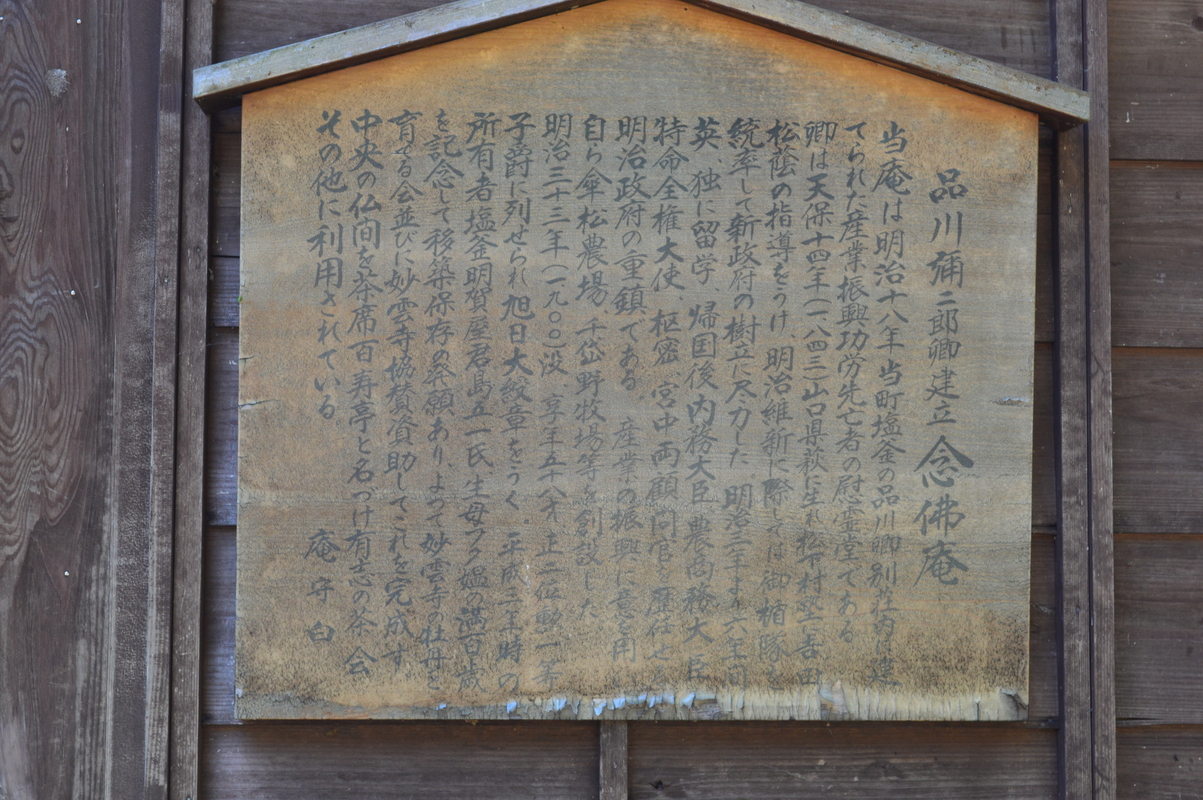 品川彌二郎卿建立 念佛庵
当庵は明治十八年当町塩釜の品川卿別荘内に建
てられた産業振興功労先亡者の慰霊堂である
卿は天保十四年(一八四三)山口県萩に生れ松下村塾吉田
松蔭の指導をうけ、明治維新に際しては御楯隊を
統率して新政府の樹立に尽力した 明治三年より六年間
英、独に留学、帰国後内務大臣、農商務大臣
特命全権大使、枢密、宮中両顧問官を歴任せる
明治政府の重鎮である。産業の振興に意を用い
自ら傘松農場、千岱野牧場等を創設した
明治三十三年(一九〇〇)没 享年五十八才、正二位勲一等
子爵に列せられ旭日大綬章をうく。平成二年時の
所有者塩釜明賀屋君島五一氏、生母フク媼の満百歳
を記念して移築保存の発願あり、よって妙雲寺の牡丹を
育せる会並びに妙雲寺協賛資助してこれを完成す
中央の仏間を茶席百寿亭と名づけ有志の茶会
その他に利用されている。
庵守白